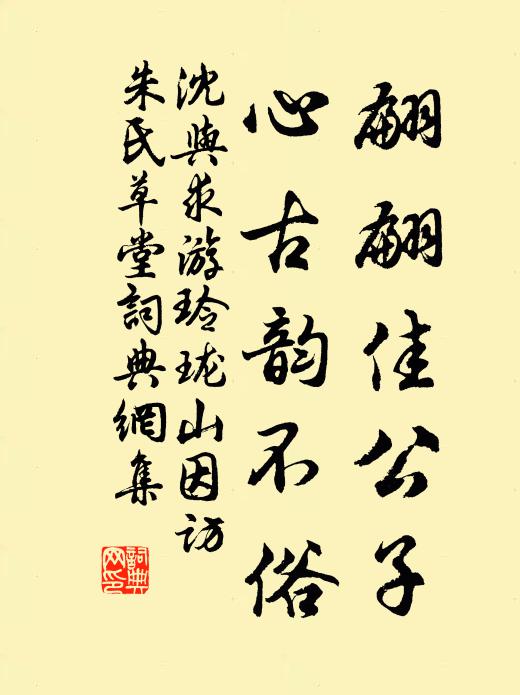 翩翩佳公子
心古韵不俗
沈與求游玲珑山因訪
朱氏草堂詞典網集
詞典网印